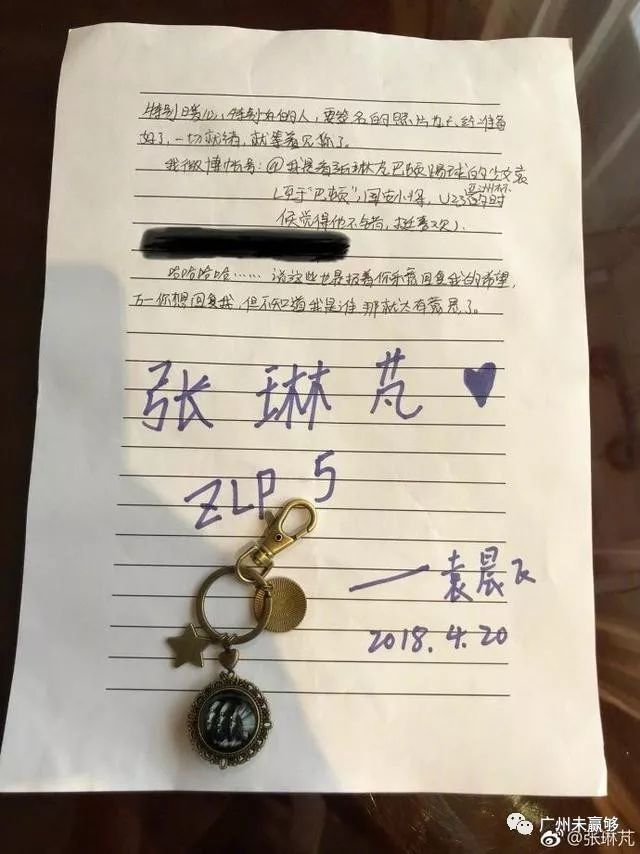 特别暖心，特别有的人，要签名的照片也已经准备
好了，一切就绪，就等着见你了。
我微博帐号：@我是看张琳芃巴顿踢球的少女袁
"巴顿"，国安小将，U23亚洲杯的时
候觉得他不错，挺喜欢）
哈哈哈哈……说这些也是抱着你来回复我的希望，
万一你想回复我，但不知道我是谁那就太尴尬了。
张琳芃
ZLP 5
——袁晨飞
2018.4.20
广州未赢够
@张琳芃